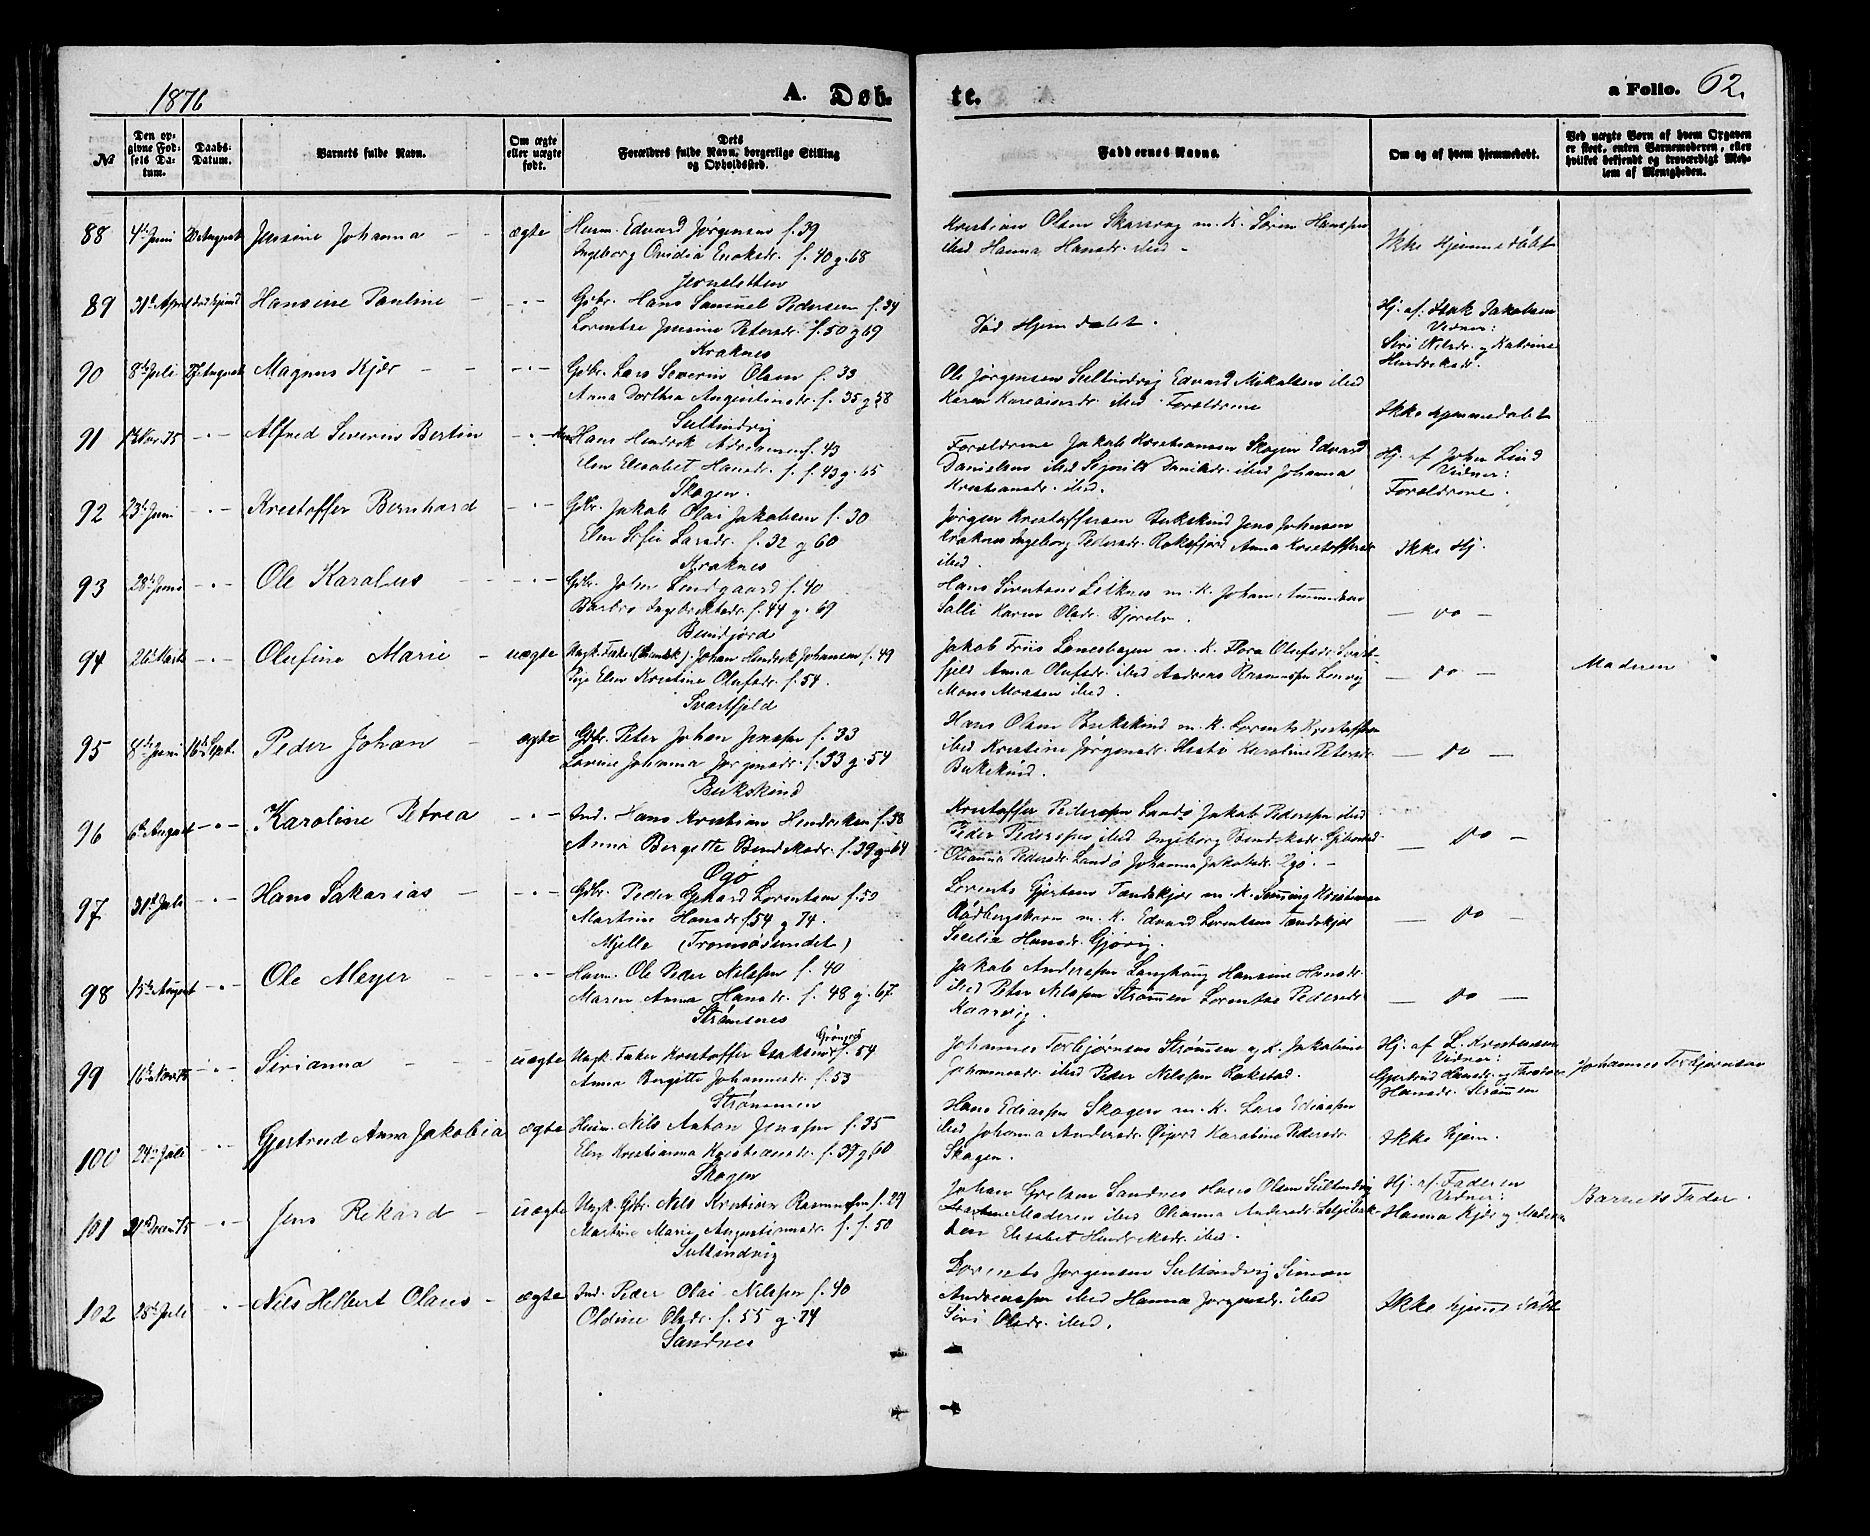 1876
A. Døb-
te.
a Folio. 62.
No
Den op-
givne Fød-
sels Da-
tum.
Daabs-
Datum.
Barnets fulde Navn.
Om ægte
eller uægte
født.
Dets
Forældres fulde Navn, borgerlige Stilling
og Opholdssted.
Faddernes Navne.
Om og af hvem hjemmedøbt.
Ved uægte Børn af hvem Opgaven
er skeet, enten Barnemoderen, eller
hvilket bekjendt og troværdigt Med-
lem af Menigheden.
88 4de Juni August Jensine Johanna - - ægte Huusm. Edvard Jørgensen f. 39
Ingeborg Ovidia Enoksdr. f. 40 g. 68
Jernsletten
Kristian Olsen Skarsvåg m. K. Søren Hanssen
ibid Hanna Hansdr. ibid -
Ikke hjemmedøbt
89 Hansine Pauline - - " - Gbr. Hans Samuel Pedersen f. 34
Lorentse Jensine Petersdr. f. 50 g 69
Kraknes
Død Hjem døbt.
Hj. af Isak Jakobsen
Vidner:
Siri Nilsdr. og Katrine
Hendriksdr.
90 8de Juli August Magnus Kjær - - - " - Gbr. Lars Severin Olsen f. 33
Anna Dorthea Augustinusdr. f. 35 g 58
Sultindvig
Ole Jørgensen Sultindvig Edvard Mikalsen ibid
Karen ibid. Forældrene
Ikke hjemmedøbt
91 Nov. 75 - " - Alfred Severin Bertin - " - Hans Hendrik Adriansen f. 43
Elen Elisabet Hansdr. f. f. 43 g. 65
Skogen.
Forældrene Jakob Kristiansen Skogen Edvard
Danielsen ibid Danielsdr. ibid Johanna
Kristiansdr. ibid.
Hj. af John Lind
Vidner:
Forældrene.
92 23de Juni - " - Kristoffer Bernhard - " - Gbr. Jakob Olai Jakobsen f. 30
Elen Sofie Larsdr. f. 32 g 60
Kraknes
Jørgen Kristoffersen Bukskind Jens Johnsen
Kraknes Ingeborg Pedersdr. Rakfjord Anna Kristoffersdr.
ibid.
Ikke Hj.
93 28de Juni - " - Ole Karolus - " - Gbr. John Lindgaard f. 40
Barbro Ingebrigtsdr. f. 44 g. 69
Buntfjord
Hans Sivertsen m. K. Johan
Salli Karen Olsdr. Bjorelv.
- do -
94 26de Marts - " - Olufine Marie - uægte Ungk. Fisker Johan Hendrik Johansen f. 49
Pige Elen Kristine Olufsdr. f. 54.
Svartfjeld
Jakob Friis m. K. Flora Olufsdr. Svart-
fjeld Anna Olufsdr. ibid Andreas Rasmussen Lenvig
Mons Monsen ibid.
- do -
Moderen
95 8de Juni 16de Sept. Peder Johan - ægte Gbr. Peter Johan Jenssen f. 33
Lorine Johanna Jørgensdr. f. 33 g. 54
Bukskind
Hans Olsen Bukskind m. K. Lorents Kristoffersen
ibid Kristine Jørgensdr. Hesbø Karoline Petersdr.
Bukskind.
- do -
96 6te August - " - Karoline Petrea - " - Ind. Hans Kristian Hendriksen f. 38
Anna Bergitte Bendiksdr. f. 39 g. 64
Ogø
Kristoffer Pederssen Sandø Jakob Pederssen ibid
Peder Pederssen ibid Ingeborg Bendiksdr. Gibostad
Olianna Pedersdr. Sandø Johanna Jakobsdr. Ogø. -
- do -
97 31te Juli - " - Hans Sakarias - - " - Gbr. Peder Gjæhard Lorentsen f. 50
Martine Hansdr. f. 54 g 74.
Mjelle (Tromsøsundet)
Lorents Gjertsen Tændskjær m. K. Henning Kristiansen
Rødbergshavn m. K. Edvard Lorentsen Tændskjær
Secilia Hansdr. Gjøvig.
- do -
98 15de August - " - Ole Meyer - - " - Huusm. Ole Peder Nilssen f. 40
Maren Anna Hansdr. f. 48 g. 67
Strømsnes
Jakob Anderssen Langhaug Hansine Hansdr.
ibid Peter Nilssen Strømmen Lorentse Pedersdr.
Kaarvig.
- do -
99 16de Nov 75 - " - Sirianna - - uægte Ungk. Fisker Kristoffer Isaksen f. 54
Anna Bergitte Johannesdr. f. 53
Strømmen
Johannes Torbjørnsen Strømmen og K. Jakobine
Johannesdr. ibid Peder Nilssen Rakstad.
Hj. af L. Kristensen
Vidner:
Gjertrud Hansdr. og
Hansdr. Strømmen
Johannes Torbjørnsen
100 24de Juli - " - Gjertrud Anna Jakobia ægte Huusm. Nils Anton Jenssen f. 35
Elen Kristianna Kristiansdr. f. 37 g. 60
Skogen
Hans Ediassen Skogen m. K. Lars Ediassen
ibid Johanna Andersdr. Øijord Karoline Pedersdr.
Skogen.
Ikke hjem.
101 31te Decem 75 - " - Jens Rekard - uægte Ungk. Gbr. Nils Kristian Rasmussen f. 29
Martine Marie Augustinusdr. f. f. 50
Sultindvig
Johan Grelsen Sandnes Hans Olsen Sultindvig
Moderen ibid Olianna Andersdr. Selfisbak-
ken Elisabet Hendriksdr. ibid.
Hj. af Faderen
Vidner:
Hanna Kjær og Moderen
Barnets Fader.
102 28de Juli - " - Nils Helbert Olaus - ægte Ind. Peder Olai Nilssen f. 40
Oldine Olsdr. f. 55 g. 74
Sandnes
Lorents Jørgensen Sultindvig Simon
Andreassen ibid Hanna Jørgensdr. ibid
Siri Olsdr. ibid.
Ikke hjemmedøbt